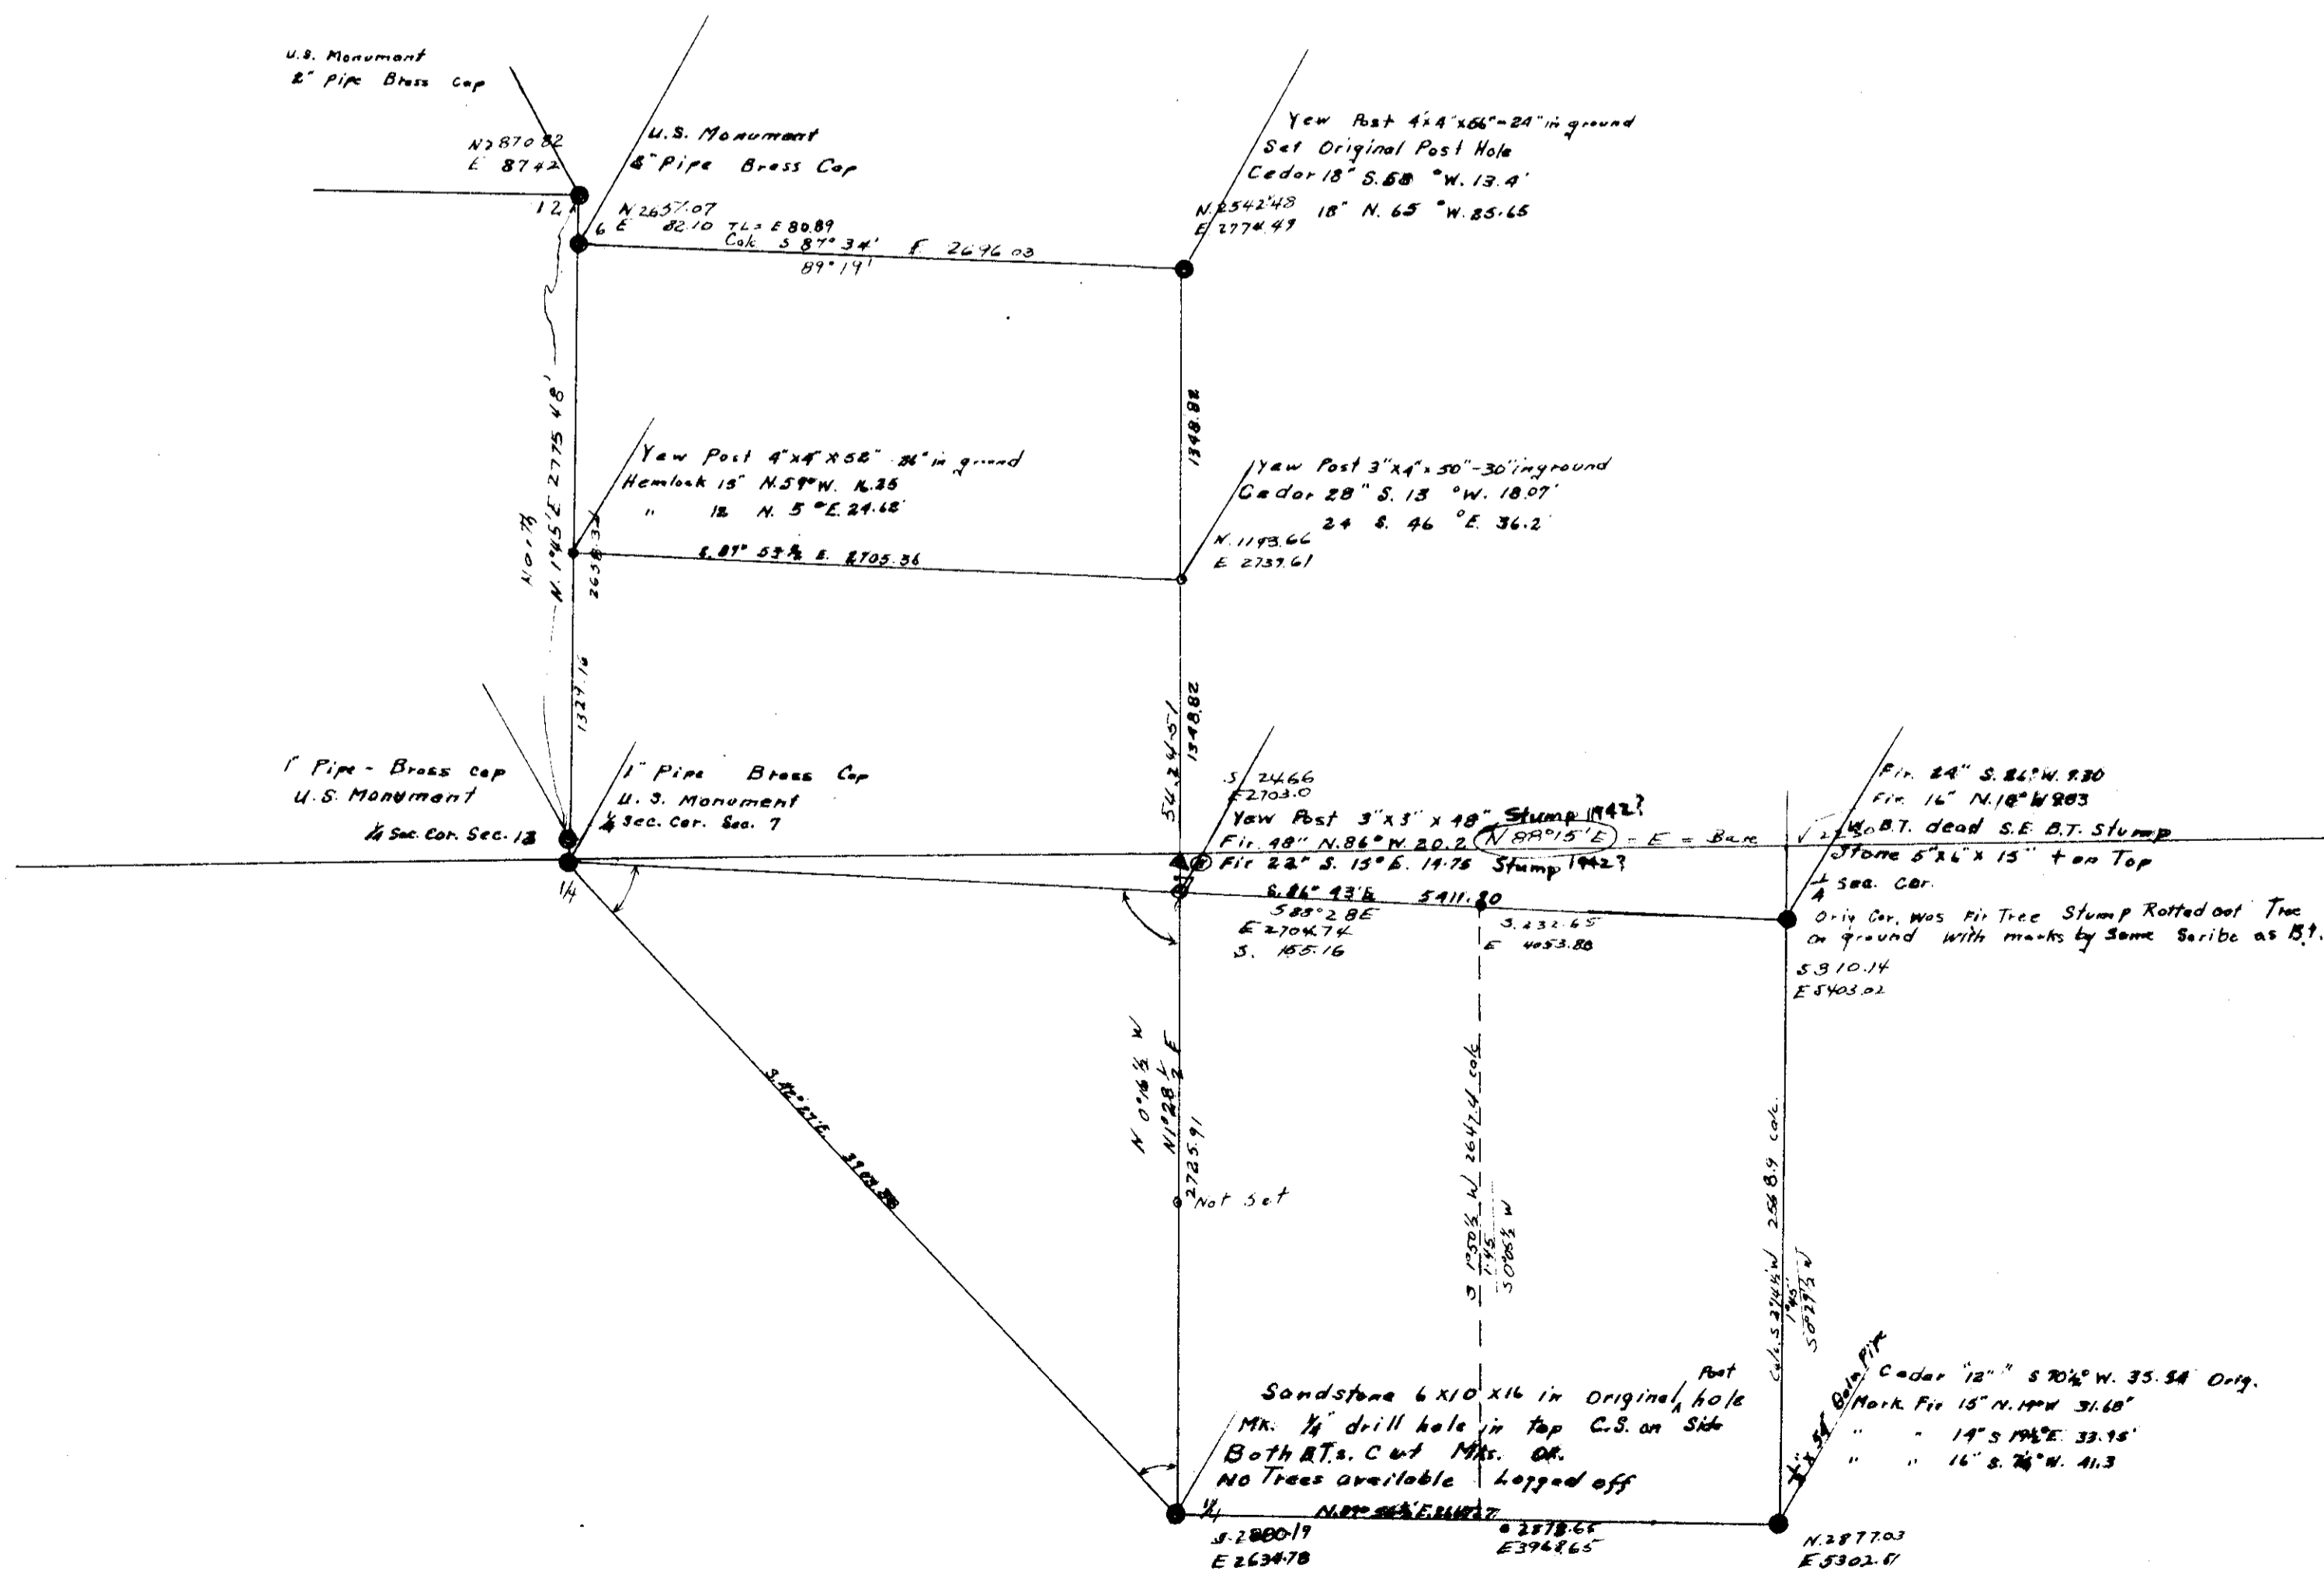 U.S. Monument
2" Pipe Brass Cap
N 2870 82
E 8742
U.S. Monument
Pipe Brass Cap
12
6
N 2657.07
E 82.10 TL = E 80.89
Calc S 87° 34' E 2696.03
89° 19'
Yew Post 4"x4"x66"-24" in ground
Set Original Post Hole
Cedar 18" S. 58 °W. 13.4'
18" N. 65 °W. 25.65
N. 2542.48
E. 2774.49
North
N. 1°45' E 2775 48'
2658.32
1329.16
1348.82
Yew Post 4"x4"x52" in ground
Hemlock 15" N. 59° W. 16.25
" 12 N. 5 °E. 24.62'
2705.36
Yew Post 3"x4"x50"-30" in ground
Cedar 28" S. 13 °W. 18.07'
24 S. 46 °E. 36.2'
N. 1193.66
E 2739.61
5424.51
1348.82
1" Pipe - Brass Cap
U.S. Monument
1/4 Sec. Cor. Sec. 12
1" Pipe Brass Cap
U.S. Monument
1/4 Sec. Cor. Sec. 7
1/4
S 24.66
E 2703.0
Yew Post 3"x3" x 48" Stump 1942?
Fir 48" N. 86° W. 20.2 N 88°15' E - E = Base
Fir 22" S. 15° E. 14.75 Stump 1942?
S. 86° 43' E 5411.80
S 88° 28 E
E 2704.74
S. 155.16
S. 232.65
E 4053.88
Fir 24" S. W. 9.30
Fir 16" N. W
W. B.T. dead S.E. B.T. Stump
Stone 5"x6"x 15" + on Top
1/4 Sec. Cor.
Orig Cor. Was Fir Tree Stump Rotted out Tree
on ground with marks by Same Scribe as B.T.
S 310.14
E 5403.02
N 0°16 1/2 W
N 1°28 1/2 E
2725.91
Not Set
S. 42° 27' E.
S 1°50 1/2 W 2647.4 calc
1°45
S 0°05 1/2 W
Calc. S 2°14 1/2 W 2568.9 calc.
1°45'
S 0°29 1/2 W
Sandstone 6 x10 x16 in Original Post hole
MK. 1/4" drill hole in top C.S. on Side
Both B.T.s. Cut Mks. OK.
No Trees available Logged off
1/4
S. 2880.19
E 2634.78
2878.65
E 3968.65
Galv. Pipe
Cedar "12" " S 70 1/2° W. 35.54 Orig.
Mark Fir 15" N. W 31.68'
" " 14" S E. 33.95'
" " 16" S. W. 41.3
N. 2877.03
E 5302.51